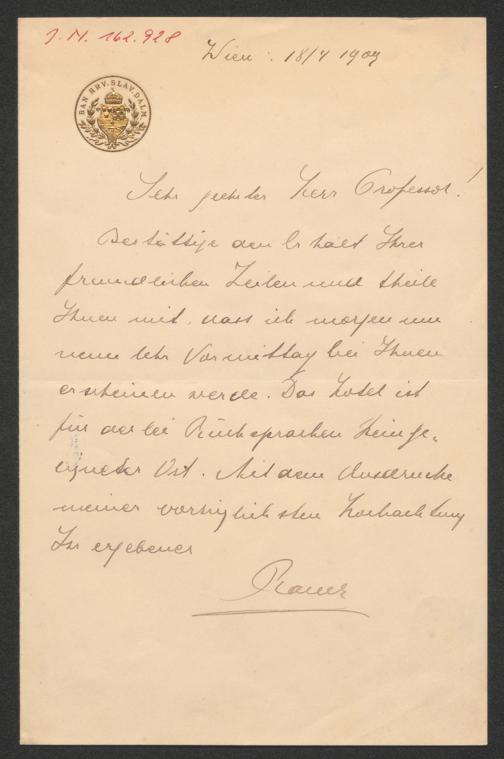 J.N. 162.928
Wien: 18/4 1909
BAN HRV. SLAV. DALM.
Sehr geehrter Herr Professor!
Bestättige den Erhalt Ihrer
freundlichen Zeilen und theile
Ihnen mit, dass ich morgen um
neun Uhr Vormittag bei Ihnen
erscheinen werde. Das Hotel ist
für derlei Rücksprachen kein ge-
eigneter Ort. Mit dem Ausdrucke
meiner vorzüglichsten Hochachtung
Ihr ergebener
Rauch